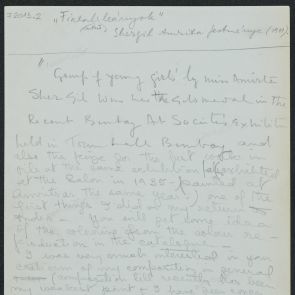 72015.2 "Fiatal leányok"
Shergil Amrika festménye (1935).
"Group of young girls" by miss Amrita
Sher Gil won her the Gold medal in the
Recent Bombay Art Society's Exhibition
held in Town Hall Bombay and
also the prize for the best work in
oils at the same exhibition (exhibited
at the Salon in 1935 - painted at
Amritsar the same year) one of the
first things I did on my return to
India - You will get some idea
of the coloring from the colour re-
production in the catalogue -
I was very much interested in your
criticism of my composition in general
composition till recently has been
my weakest point & I have been